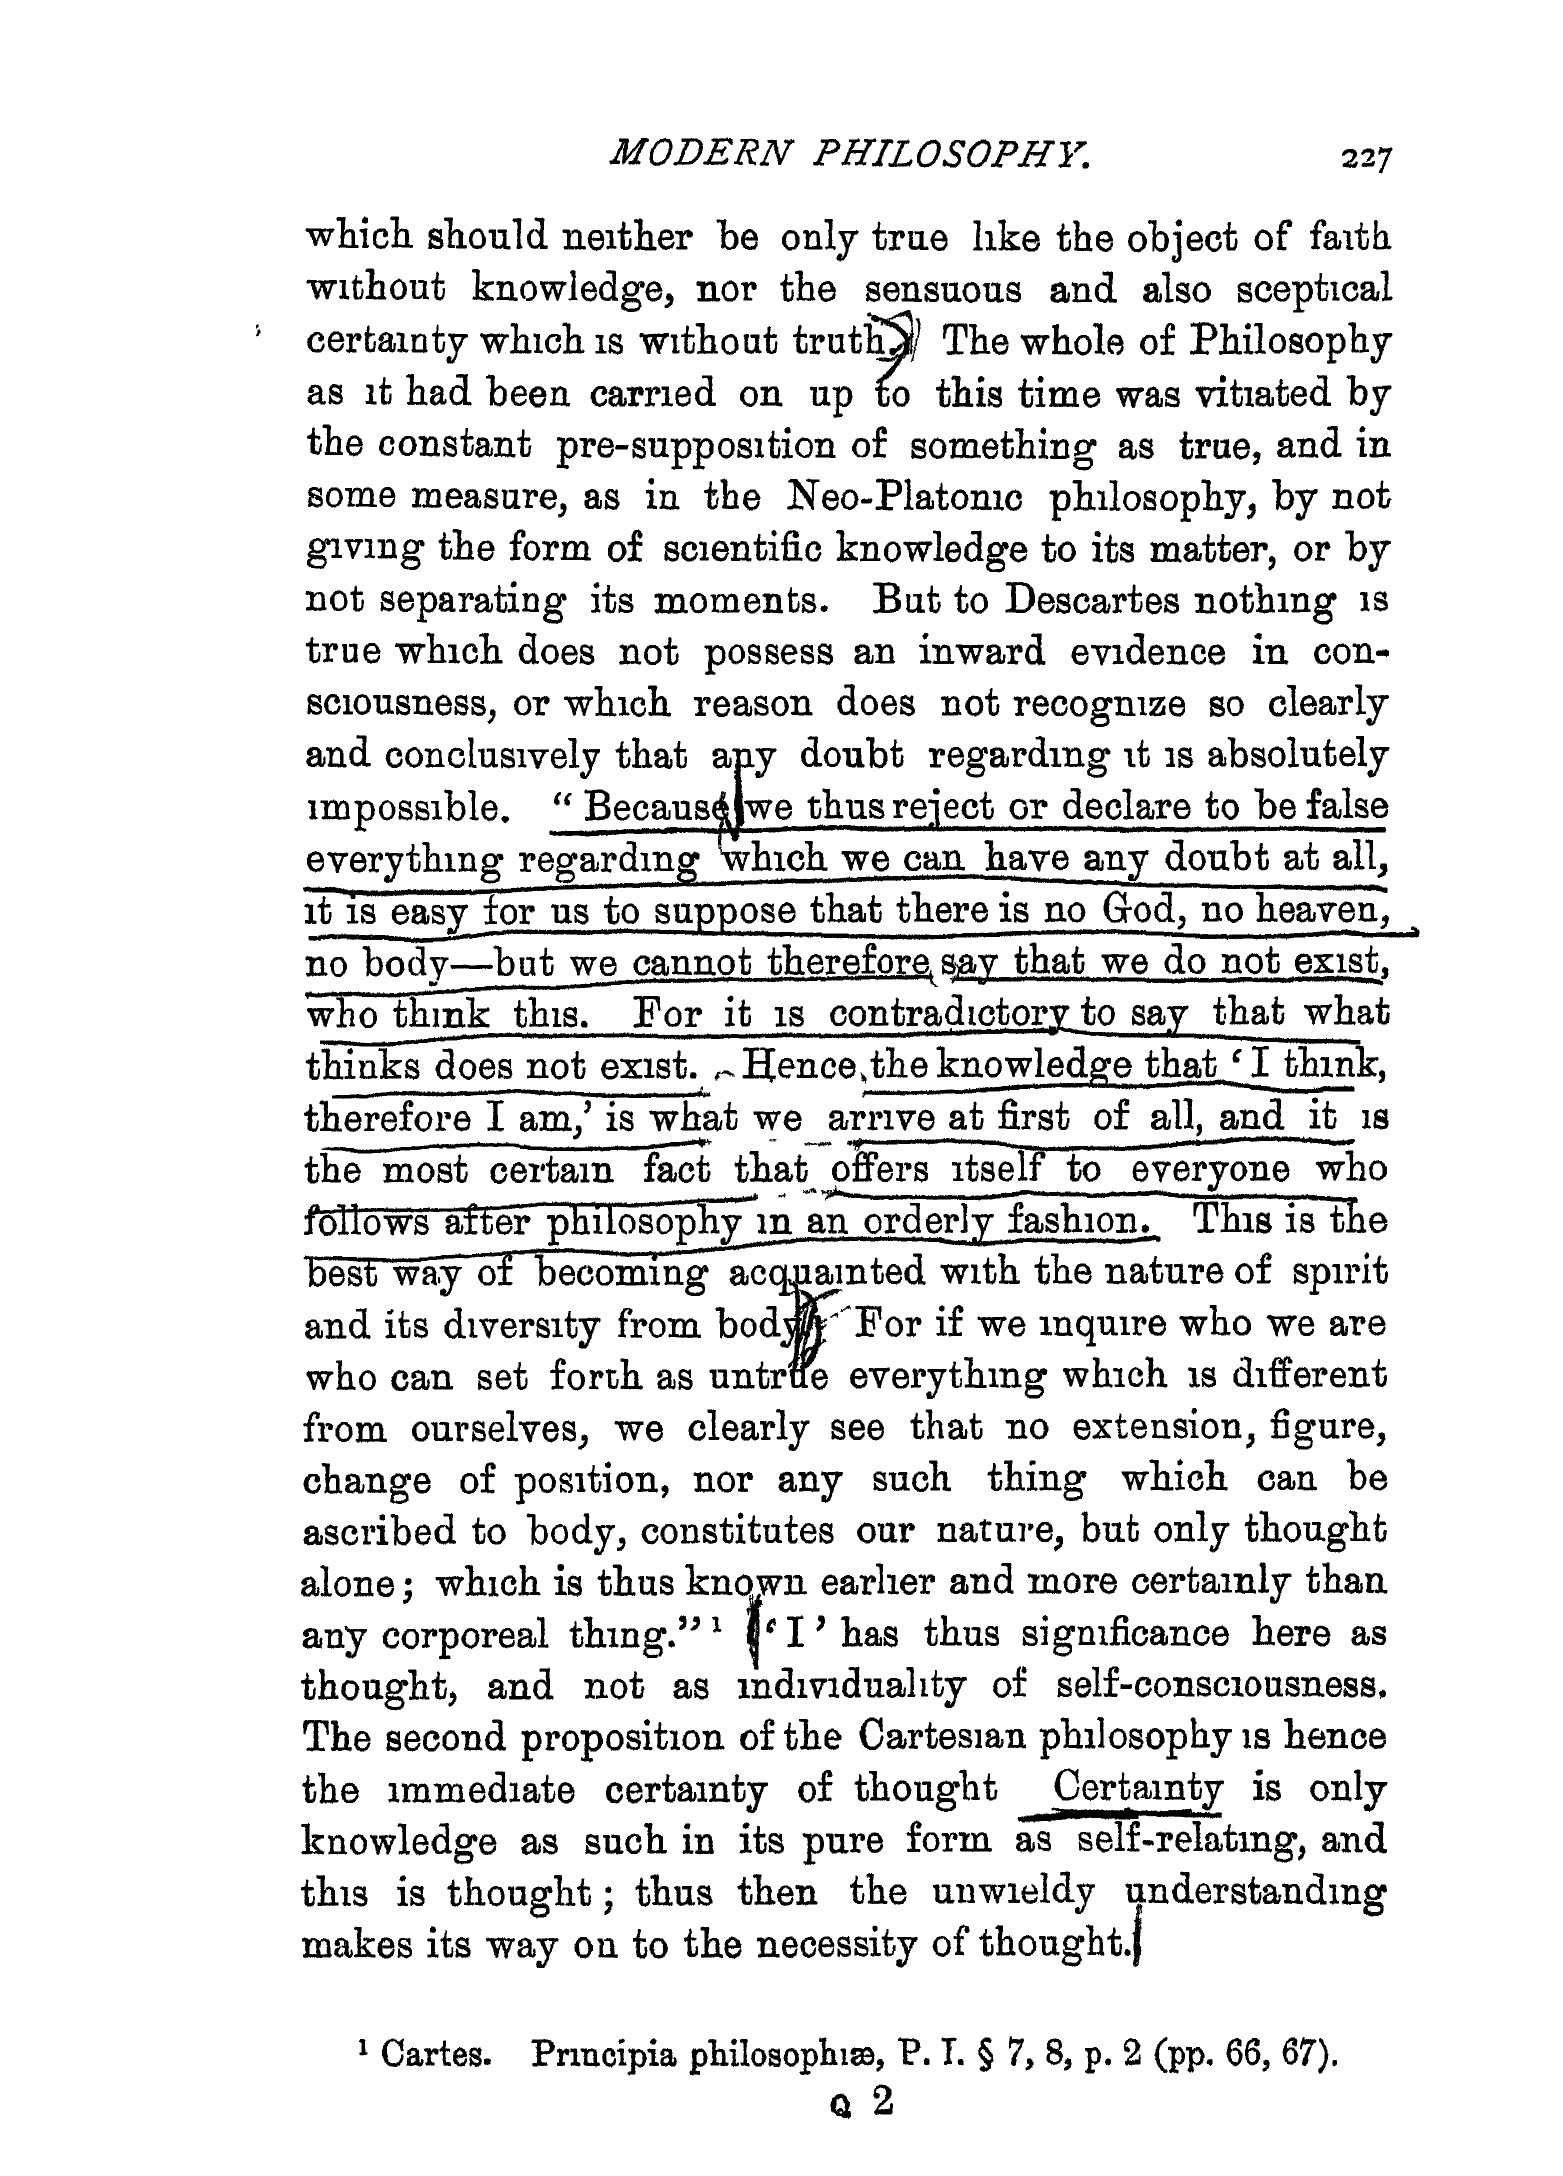 MODERN PHILOSOPHY. 227
which should neither be only true like the object of faith
without knowledge, nor the sensuous and also sceptical
certainty which is without truth. The whole of Philosophy
as it had been carried on up to this time was vitiated by
the constant pre-supposition of something as true, and in
some measure, as in the Neo-Platonic philosophy, by not
giving the form of scientific knowledge to its matter, or by
not separating its moments. But to Descartes nothing is
true which does not possess an inward evidence in con-
sciousness, or which reason does not recognize so clearly
and conclusively that any doubt regarding it is absolutely
impossible. “Because we thus reject or declare to be false
everything regarding which we can have any doubt at all,
it is easy for us to suppose that there is no God, no heaven,
no body—but we cannot therefore say that we do not exist,
who think this. For it is contradictory to say that what
thinks does not exist. Hence the knowledge that ‘I think,
therefore I am,’ is what we arrive at first of all, and it is
the most certain fact that offers itself to everyone who
follows after philosophy in an orderly fashion. This is the
best way of becoming acquainted with the nature of spirit
and its diversity from body. For if we inquire who we are
who can set forth as untrue everything which is different
from ourselves, we clearly see that no extension, figure,
change of position, nor any such thing which can be
ascribed to body, constitutes our nature, but only thought
alone; which is thus known earlier and more certainly than
any corporeal thing.”¹ ‘I’ has thus significance here as
thought, and not as individuality of self-consciousness.
The second proposition of the Cartesian philosophy is hence
the immediate certainty of thought Certainty is only
knowledge as such in its pure form as self-relating, and
this is thought; thus then the unwieldy understanding
makes its way on to the necessity of thought.
¹ Cartes. Principia philosophiæ, P. I. § 7, 8, p. 2 (pp. 66, 67).
Q 2